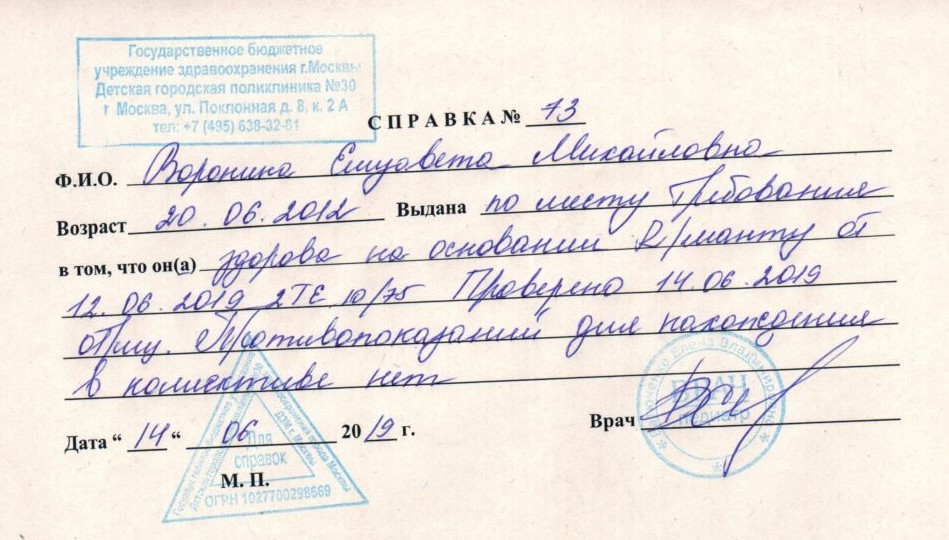 Государственное бюджетное
учреждение здравоохранения г.Москвы
Детская городская поликлиника №30
г Москва, ул. Поклонная д. 8, к. 2 А
тел: +7 (495) 638-32-61
СПРАВКА № 73
Ф.И.О. Воронина Елизавета Михайловна
Возраст 20.06.2012 Выдана по месту Требования
в том, что он(а) здорова на основании R/манту от
12.06.2019 2ТЕ 10/75 Проверено 14.06.2019
отриц. Противопоказаний для нахождения
в коллективе нет
Дата “ 14 “ 06 20 19 г.
Врач
ВРАЧ
педиатр
Елена Владимировна
Для
справок
М. П.
ОГРН 1027700298669